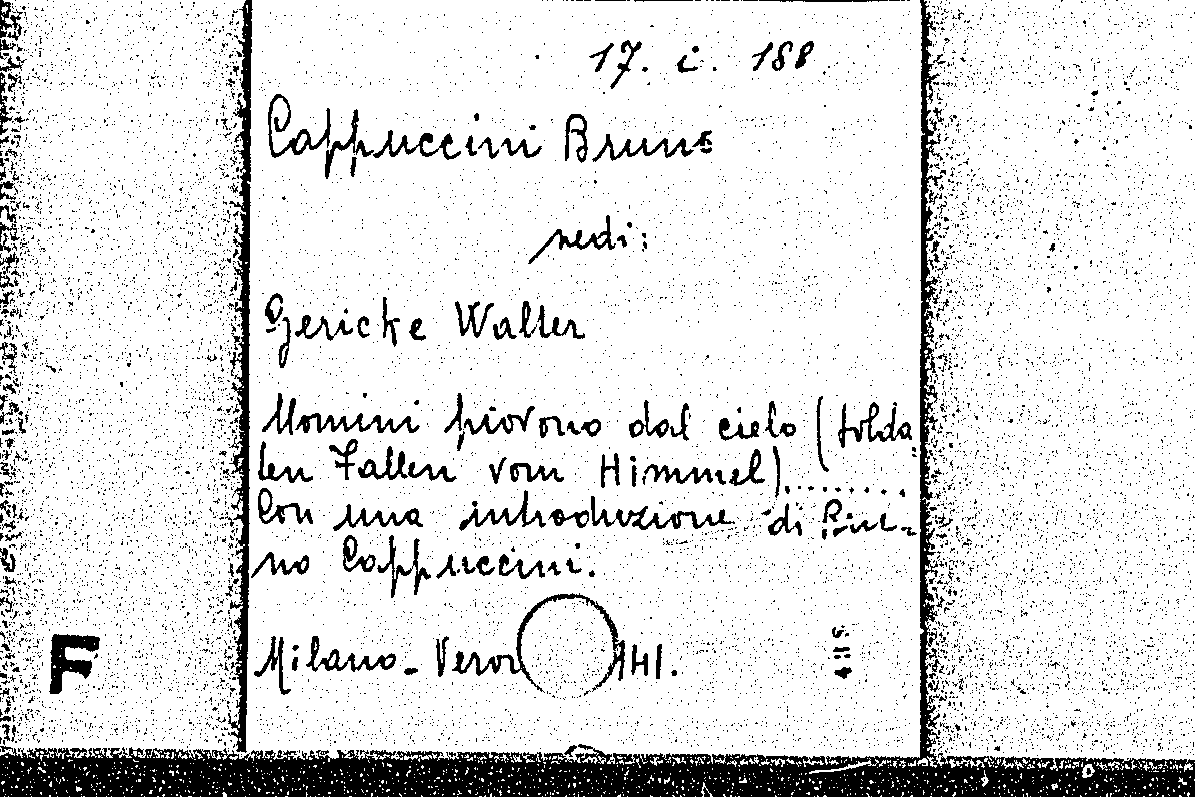 17. i. 188
Cappuccini Bruno
vedi:
Gericke Walter
Uomini piovono dal cielo (Solda
ten Fallen vom Himmel).........
Con una introduzione di Bru-
no Cappuccini.
Milano - Veron 141.
F